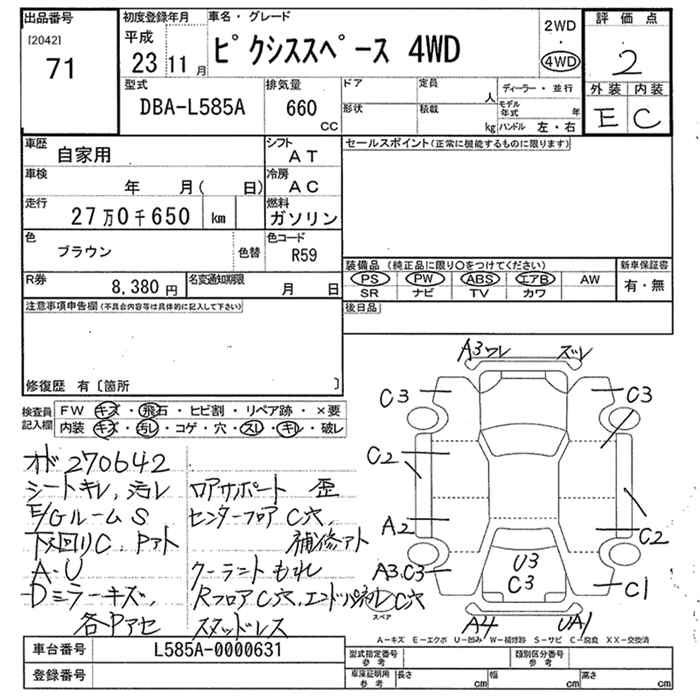 出品番号
[2042]
71
初度登録年月
平成
23 11月
車名・グレード
ピクシススペース 4WD
2WD
・
4WD
評価点
2
外装 内装
E C
型式
DBA-L585A
排気量
660
CC
ドア
形状
定員
人
積載
kg
ディーラー・並行
モデル年式 年
ハンドル 左・右
車歴
自家用
シフト
AT
車検
年 月( 日)
冷房
AC
走行
27万0千650 km
燃料
ガソリン
色
ブラウン
色替
色コード
R59
R券
8,380円
名変通知期限
月 日
セールスポイント(正常に機能するものに限ります)
装備品(純正品に限り○をつけてください)
新車保証書
PS PW ABS エアB AW
SR ナビ TV カワ
有・無
後日品
注意事項申告欄(不具合内容等は具体的に記入して下さい)
修復歴 有〔箇所 〕
検査員
記入欄
FW キズ・飛石・ヒビ割・リペア跡・×要
内装 キズ・汚レ・コゲ・穴・スレ・キレ・破レ
オド270642
シートキレ,汚レ
E/GルームS
下回りC.Pアト
A・U
Dミラーキズ,
各Pアセ
コアサポート 歪
センターフロアC穴,
補修アト
クーラントもれ
RフロアC穴,エンドパネルC穴
スタッドレス
A3ワレ
ズレ
C3
C3
C2
C2
A2
A3.C3
U3
C3
C1
A4
UA1
スペア
A−キズ E−エクボ U−凹み W−補修跡 S−サビ C−腐食 XX−交換済
車台番号
L585A-0000631
登録番号
型式指定番号
参考
類別区分番号
参考
車庫証明用
参考
長さ cm
幅 cm
高さ cm